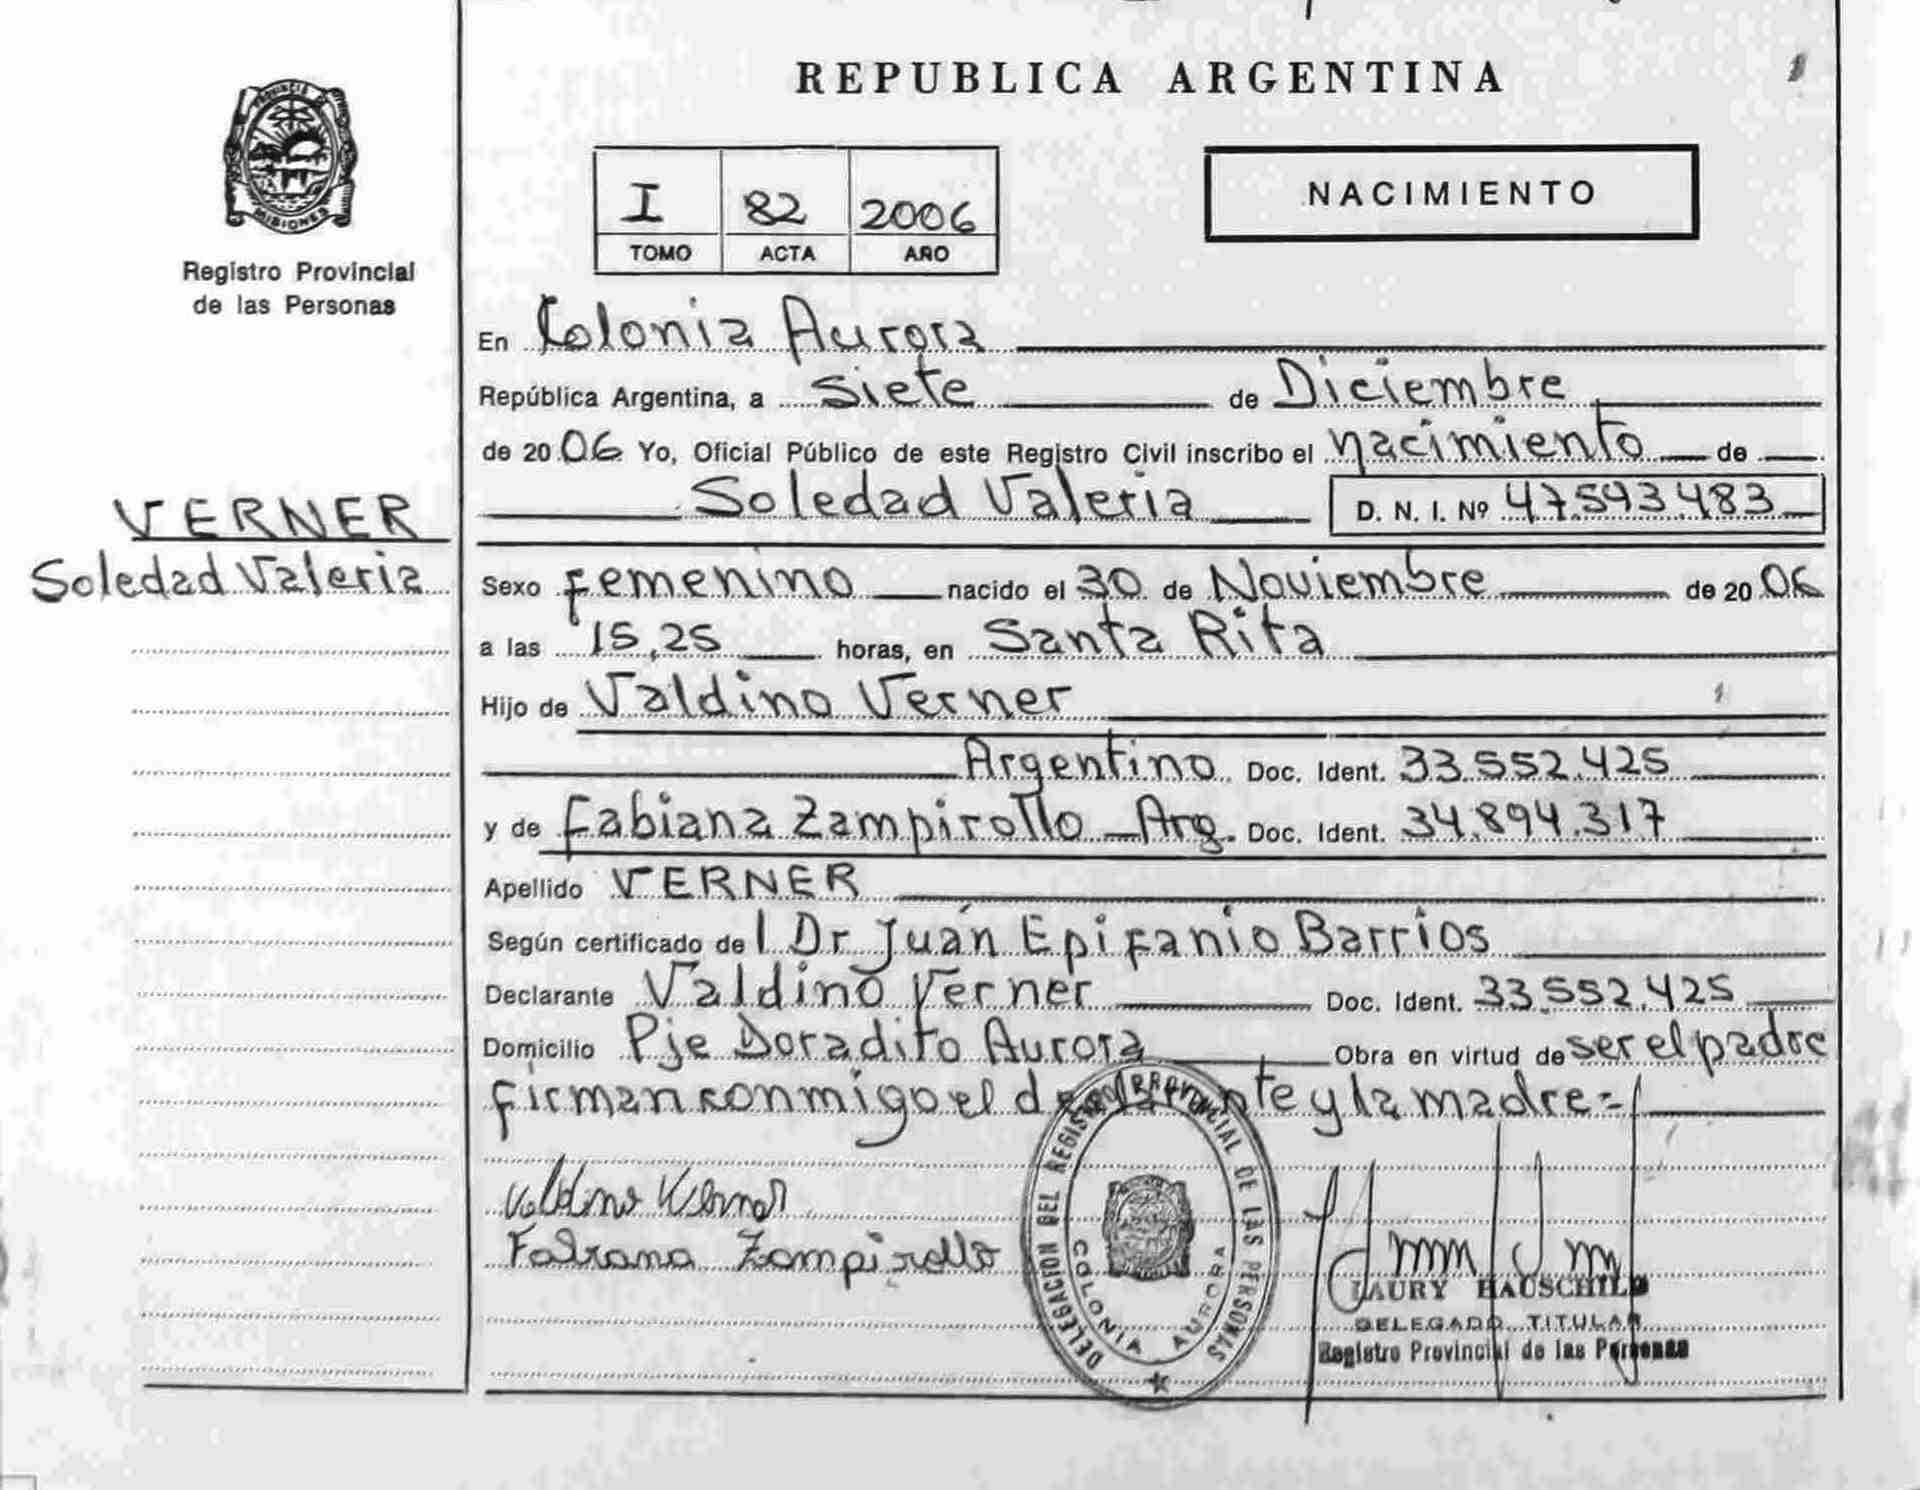 REPUBLICA ARGENTINA
PROVINCIA DE
MISIONES
Registro Provincial
de las Personas
I 82 2006
TOMO ACTA AÑO
NACIMIENTO
En Colonia Aurora
República Argentina, a siete de Diciembre
de 2006 Yo, Oficial Público de este Registro Civil inscribo el nacimiento de
Soledad Valeria D. N. I. Nº 47.593.483
VERNER
Soledad Valeria
Sexo femenino nacido el 30 de Noviembre de 2006
a las 15,25 horas, en Santa Rita
Hijo de Valdino Verner
Argentino Doc. Ident. 33.552.425
y de Fabiana Zampirollo Arg. Doc. Ident. 34.894.317
Apellido VERNER
Según certificado del Dr Juán Epifanio Barrios
Declarante Valdino Verner Doc. Ident. 33.552.425
Domicilio Pje Doradito Aurora Obra en virtud de ser el padre
firman conmigo el declarante y la madre=
Valdino Verner
Fabiana Zampirollo
DELEGACION DEL REGISTRO PROVINCIAL DE LAS PERSONAS
COLONIA AURORA
LAURY HAUSCHILD
DELEGADO TITULAR
Registro Provincial de las Personas